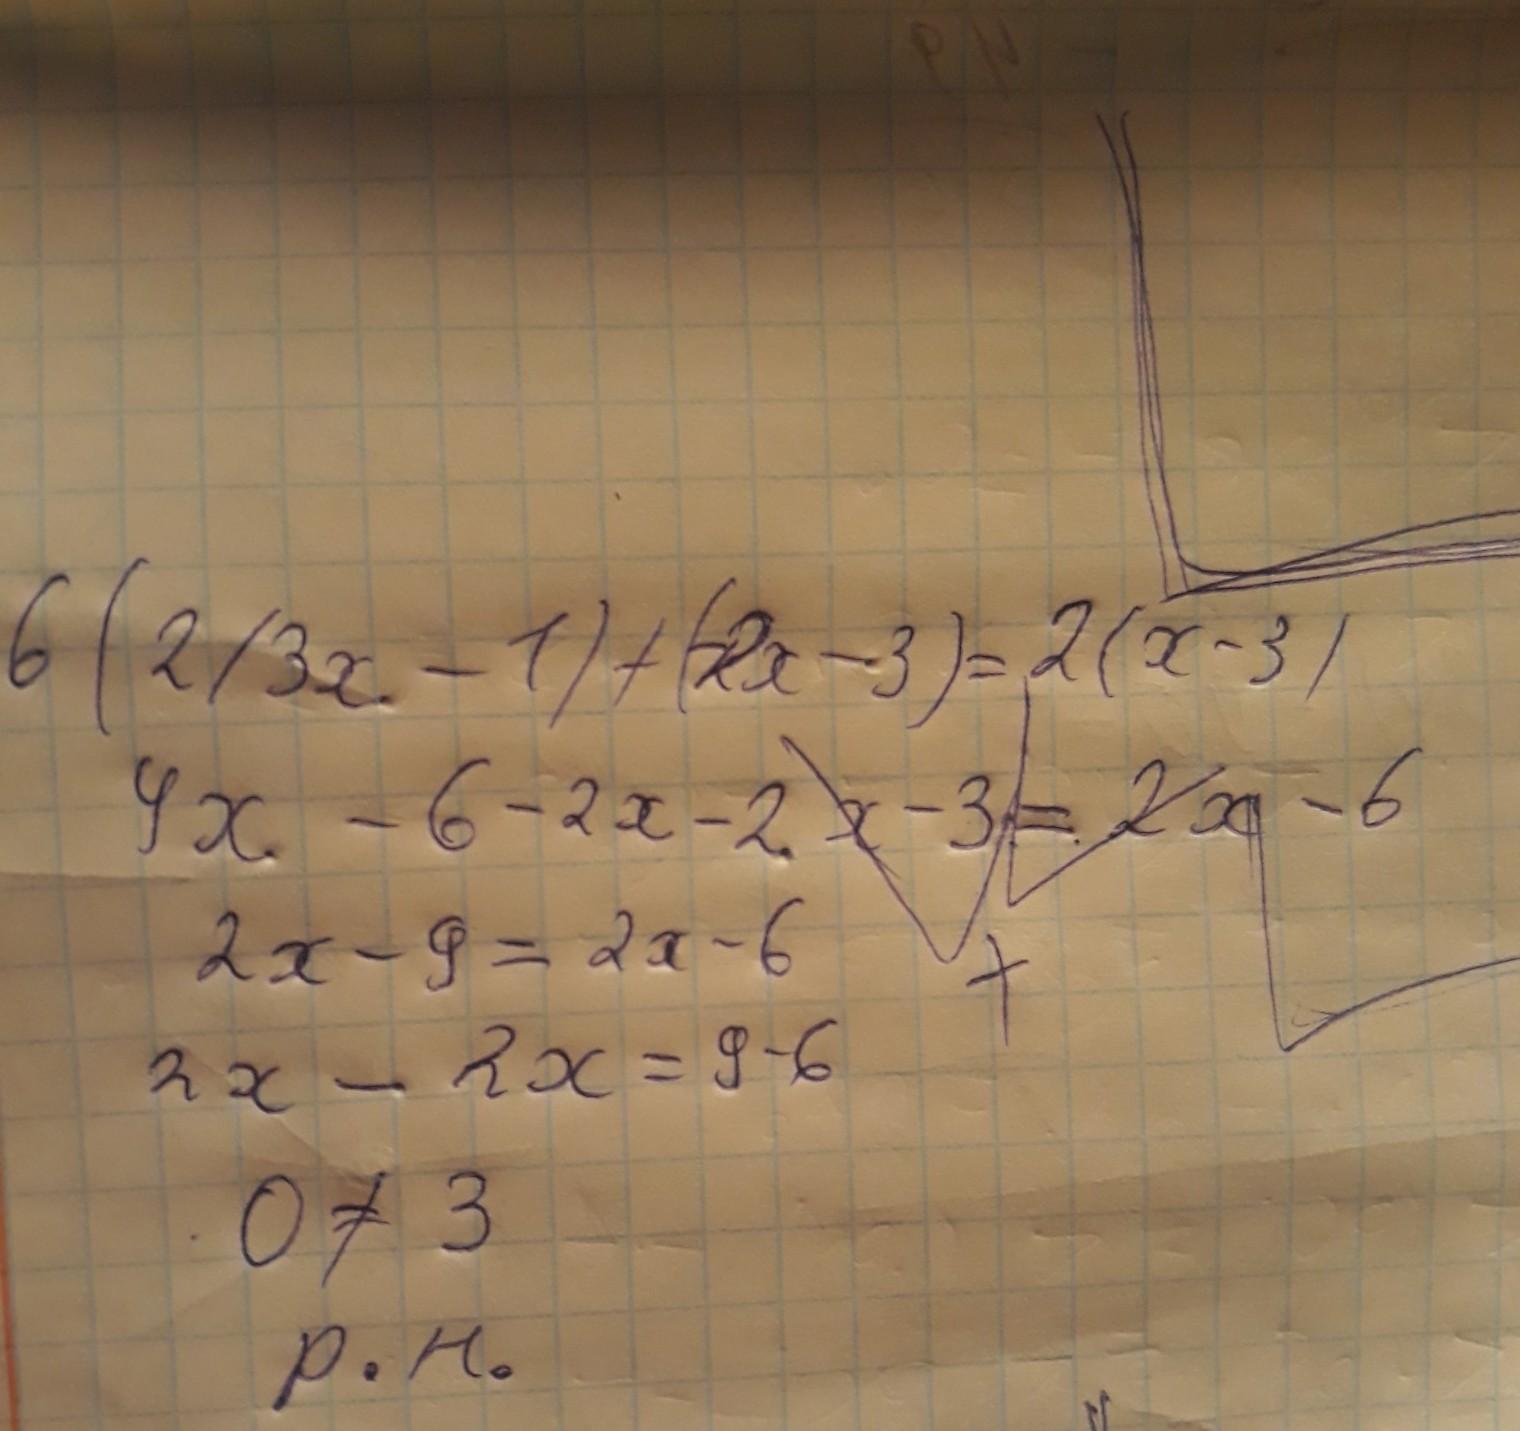 6(2/3x-1)+(-2x-3)=2(x-3)
4x-6-2x-2x-3=2x-6
2x-9=2x-6
2x-2x=9-6
0≠3
р.н.